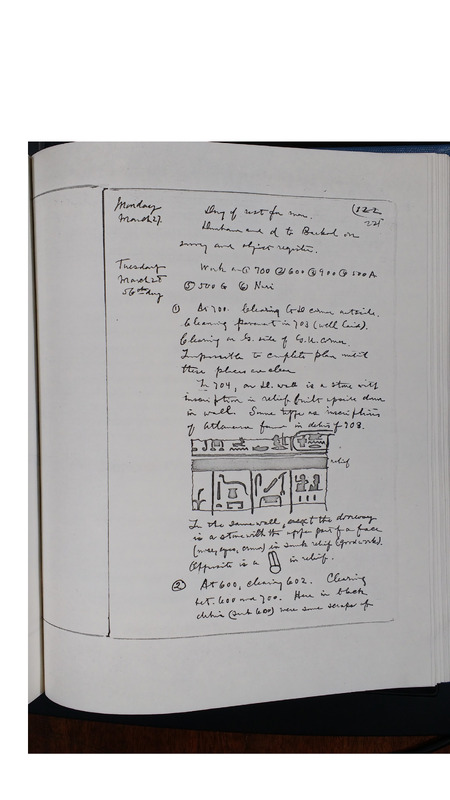 Monday March 27.
Day of rest for men.
122
Dunham and I to Barkal on
survey and object register.
Tuesday March 28
56th day
Work on ① 700 ② 600 ③ 900 ④ 500 A
⑤ 500 G ⑥ Nuri
① At 700. Clearing corner outside.
Clearing pavement in 703 (well laid).
Clearing on side of corner.
Impossible to complete plan until
these places are clear
In 704, on wall is a stone with
inscription in relief built upside down
in wall. Same type as inscriptions
of Atlanersa found in debris of 703.
relief
In the same wall, the doorway
is a stone with the upper part of a face
(nose, eyes, crown) in sunk relief (good work).
Opposite is a in relief.
② At 600, clearing 602. Clearing
bet. 600 and 700. Here in black
debris (sub 600) were some scraps of